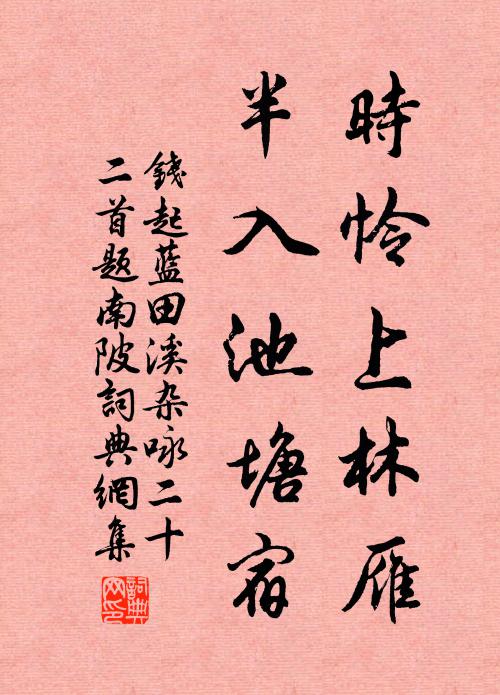 時怜上林雁
半入池塘宿
錢起藍田溪杂咏二十
二首题南陂詞典網集
詞典網印